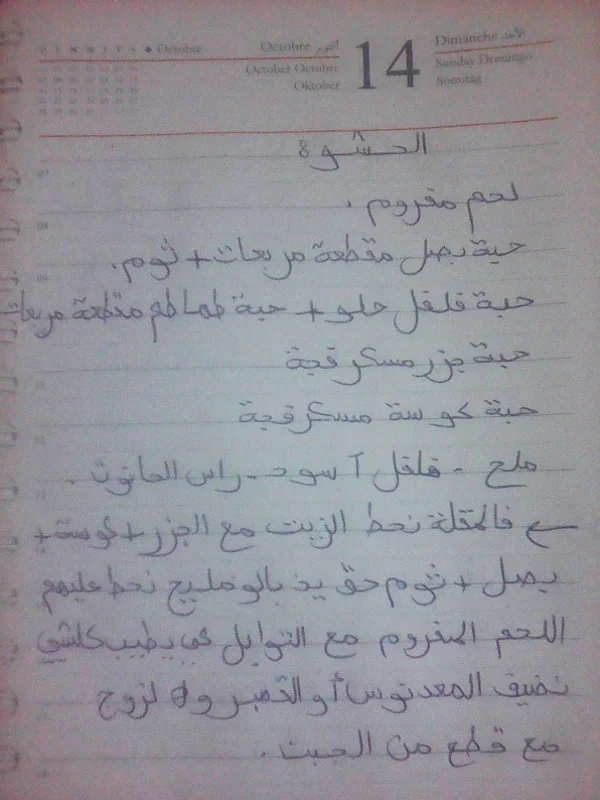 O L M M J V S ◆ Octobre
Octobre أكتوبر
October Octubre
Oktober
14
Dimanche الأحد
Sunday Domingo
Sonntag
الحشو 8
لحم مفروم .
حبة بصل مقطعة مربعات + ثوم.
حبة فلفل حلو + حبة طماطم مقطعة مربعات
حبة جزر مسكرفجة
حبة كوسة مسكرفجة
ملح - فلفل آسود - راس الحانوت .
فالمقلة نحط الزيت مع الجزر + كوسة +
بصل + ثوم حتى يذبالو مليح نحط عليهم
اللحم المفروم مع التوابل كي يطيب كلشي
نضيف المعدنوس أو القصبر ولا لزوج
مع قطع من الجبن .